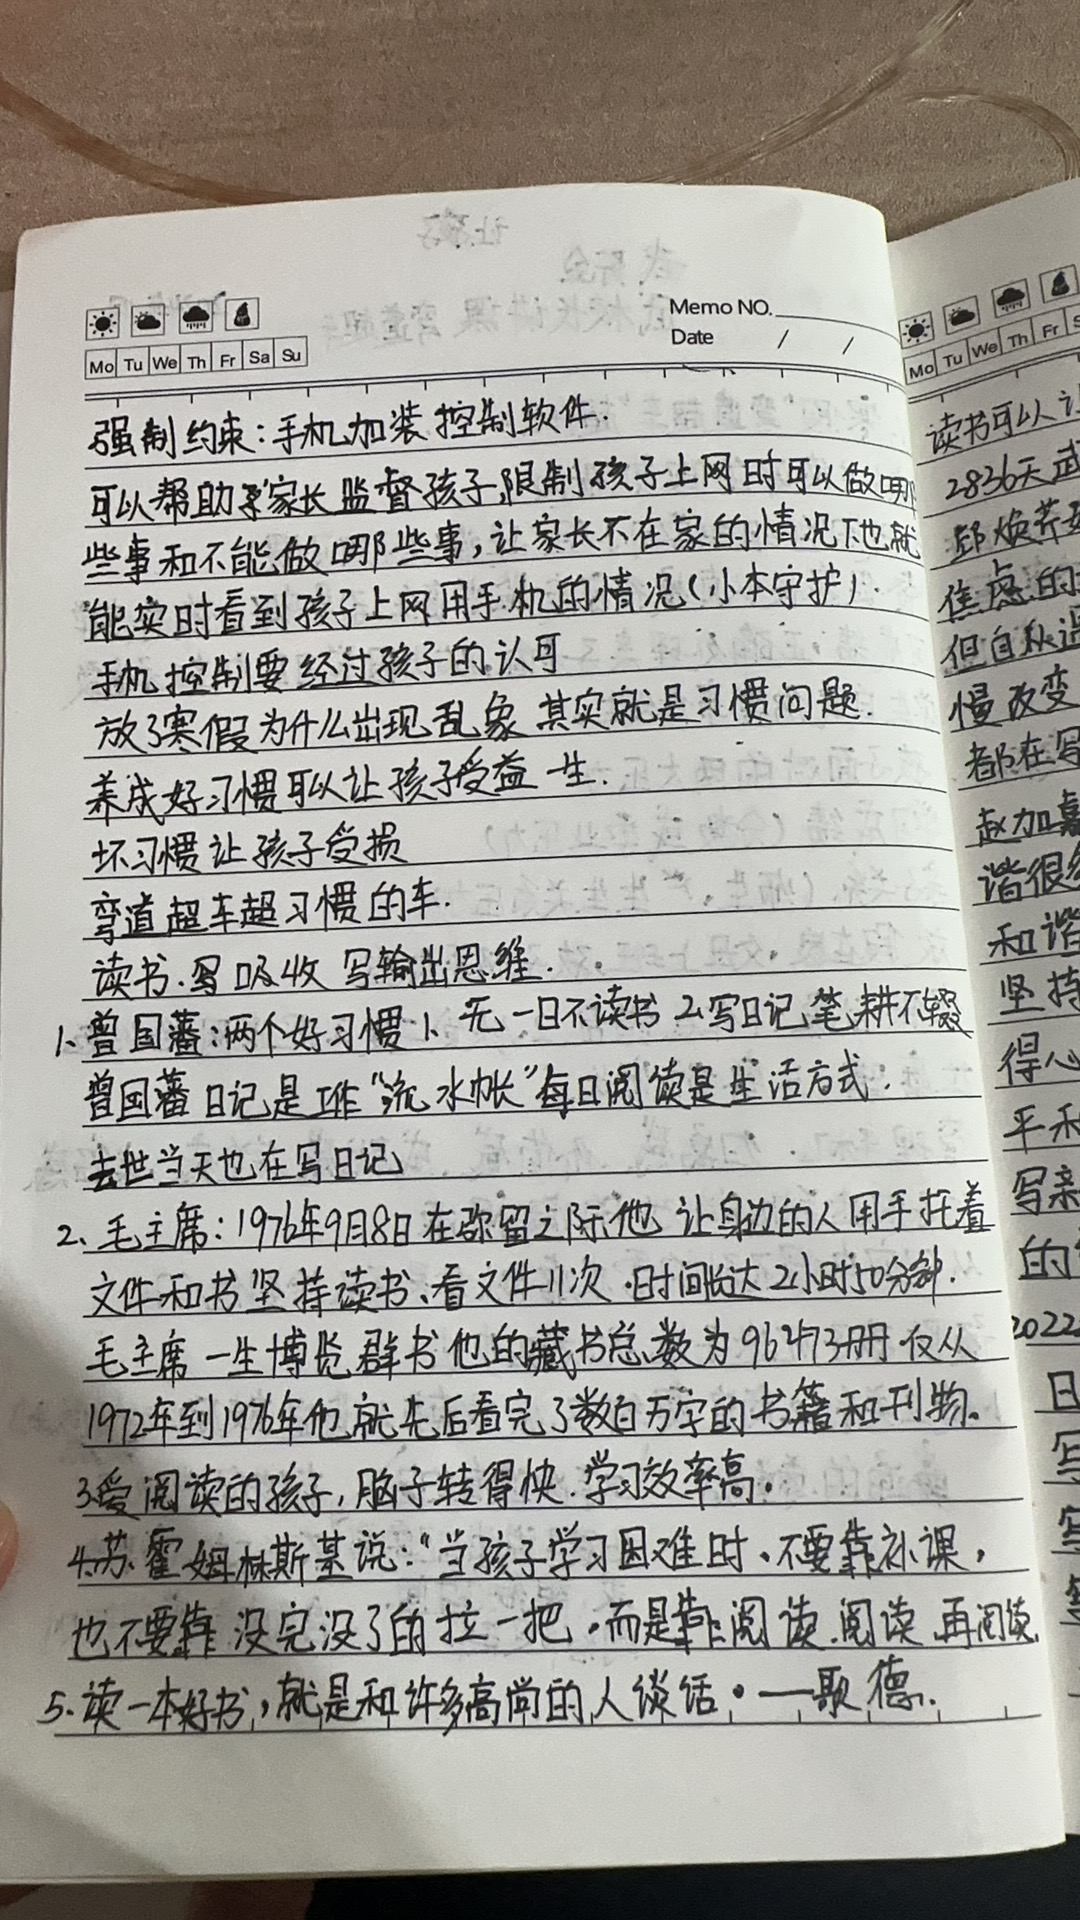 Memo NO.
Date / /
Mo Tu We Th Fr Sa Su
强制约束:手机加装控制软件.
可以帮助家长监督孩子,限制孩子上网时可以做哪
些事和不能做哪些事,让家长不在家的情况下也就
能实时看到孩子上网用手机的情况(小本守护).
手机控制要经过孩子的认可
放了寒假为什么出现乱象 其实就是习惯问题.
养成好习惯可以让孩子受益一生.
坏习惯让孩子受损
弯道超车超习惯的车.
读书.写吸收 写输出思维.
1、曾国藩:两个好习惯 1、无一日不读书 2、写日记笔耕不辍
曾国藩日记是工作“流水帐”每日阅读是生活方式.
去世当天也在写日记
2、毛主席:1976年9月8日在弥留之际,他让身边的人用手托着
文件和书坚持读书、看文件11次.时间长达2小时50分钟.
毛主席一生博览群书他的藏书总数为96473册仅从
1972年到1976年他就先后看完了数百万字的书籍和刊物。
3.爱阅读的孩子,脑子转得快.学习效率高。
4.苏.霍姆林斯基说:“当孩子学习困难时、不要靠补课,
也不要靠没完没了的拉一把.而是靠阅读.阅读.再阅读
5.读一本好书,就是和许多高尚的人谈话。——歌德.
Mo Tu We Th Fr S
读书可以
2836天武
焦虑的
但自从
慢改变
都在写
赵加嘉
谐很
和谐
坚持
得心
平和
写亲
的
2022
日
写